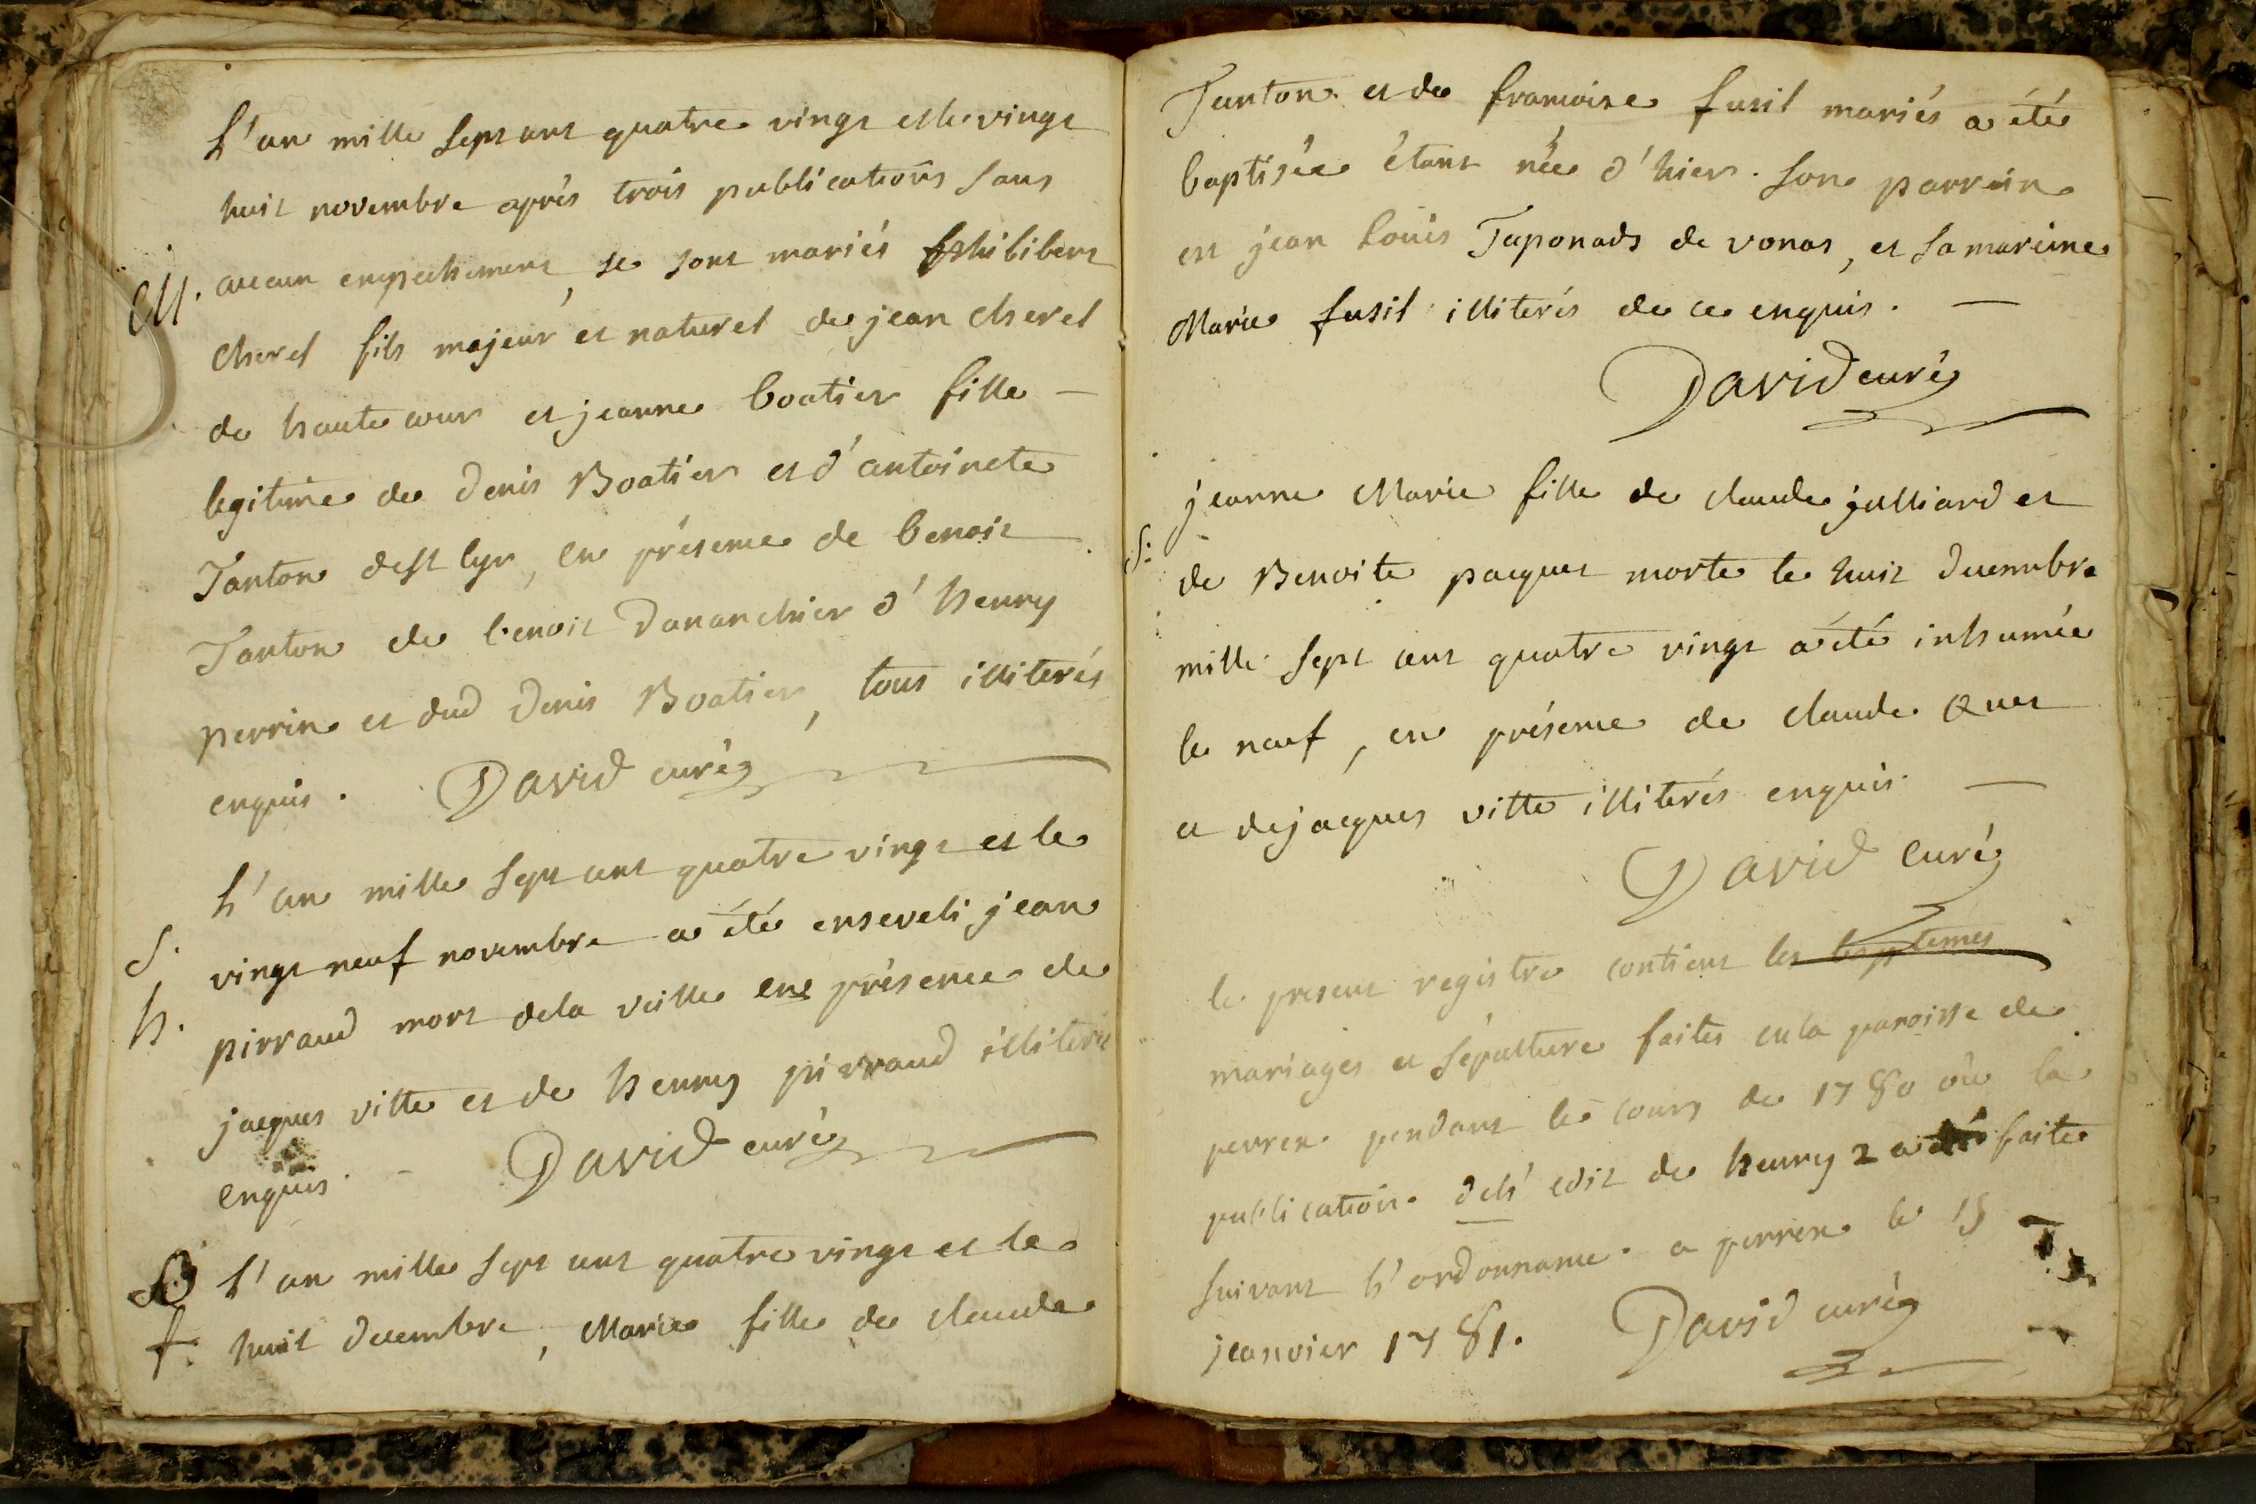 L'an mille sept cent quatre vingt et le vingt
huit novembre après trois publications sans
M. aucun empechement, se sont mariés philibert
cheret fils majeur et naturel de jean cheret
de hautecour et jeanne boatier fille —
legitime de denis Boatier et d'antoinete
Tanton de st Cyr, en présence de benoit
Tanton de benoit dananchier d'henry
perrin et dud denis Boatier, tous illiterés
enquis. David curé
L'an mille sept cent quatre vingt et le
S. vingt neuf novembre a été enseveli jean
h. pirraud mort de la veille en présence de
jacques vitte et de henry pirraud illiterés
enquis. - David curé
B L'an mille sept cent quatre vingt et le
f. huit decembre, Marie fille de claude
Tanton et de francoise fusil mariés a été
baptisée étant née d'hier. son parrein
est jean louis Taponads de vonas, et sa mareine
Marie fusil illiterés de ce enquis. —
David curé
jeanne Marie fille de claude julliard et
S: de Benoite pacquet morte le huit decembre
mille sept cent quatre vingt a été inhumée
le neuf, en présence de claude Quet
et de jacques vitte illiterés enquis. —
David curé
le present registre contient les baptemes
mariages et sépulture faites en la paroisse de
perrex pendant le cours de 1780 où la
publication de l'edit de henry 2 a été faite
suivant l'ordonnance. a perrex le 15
jeanvier 1781. David curé